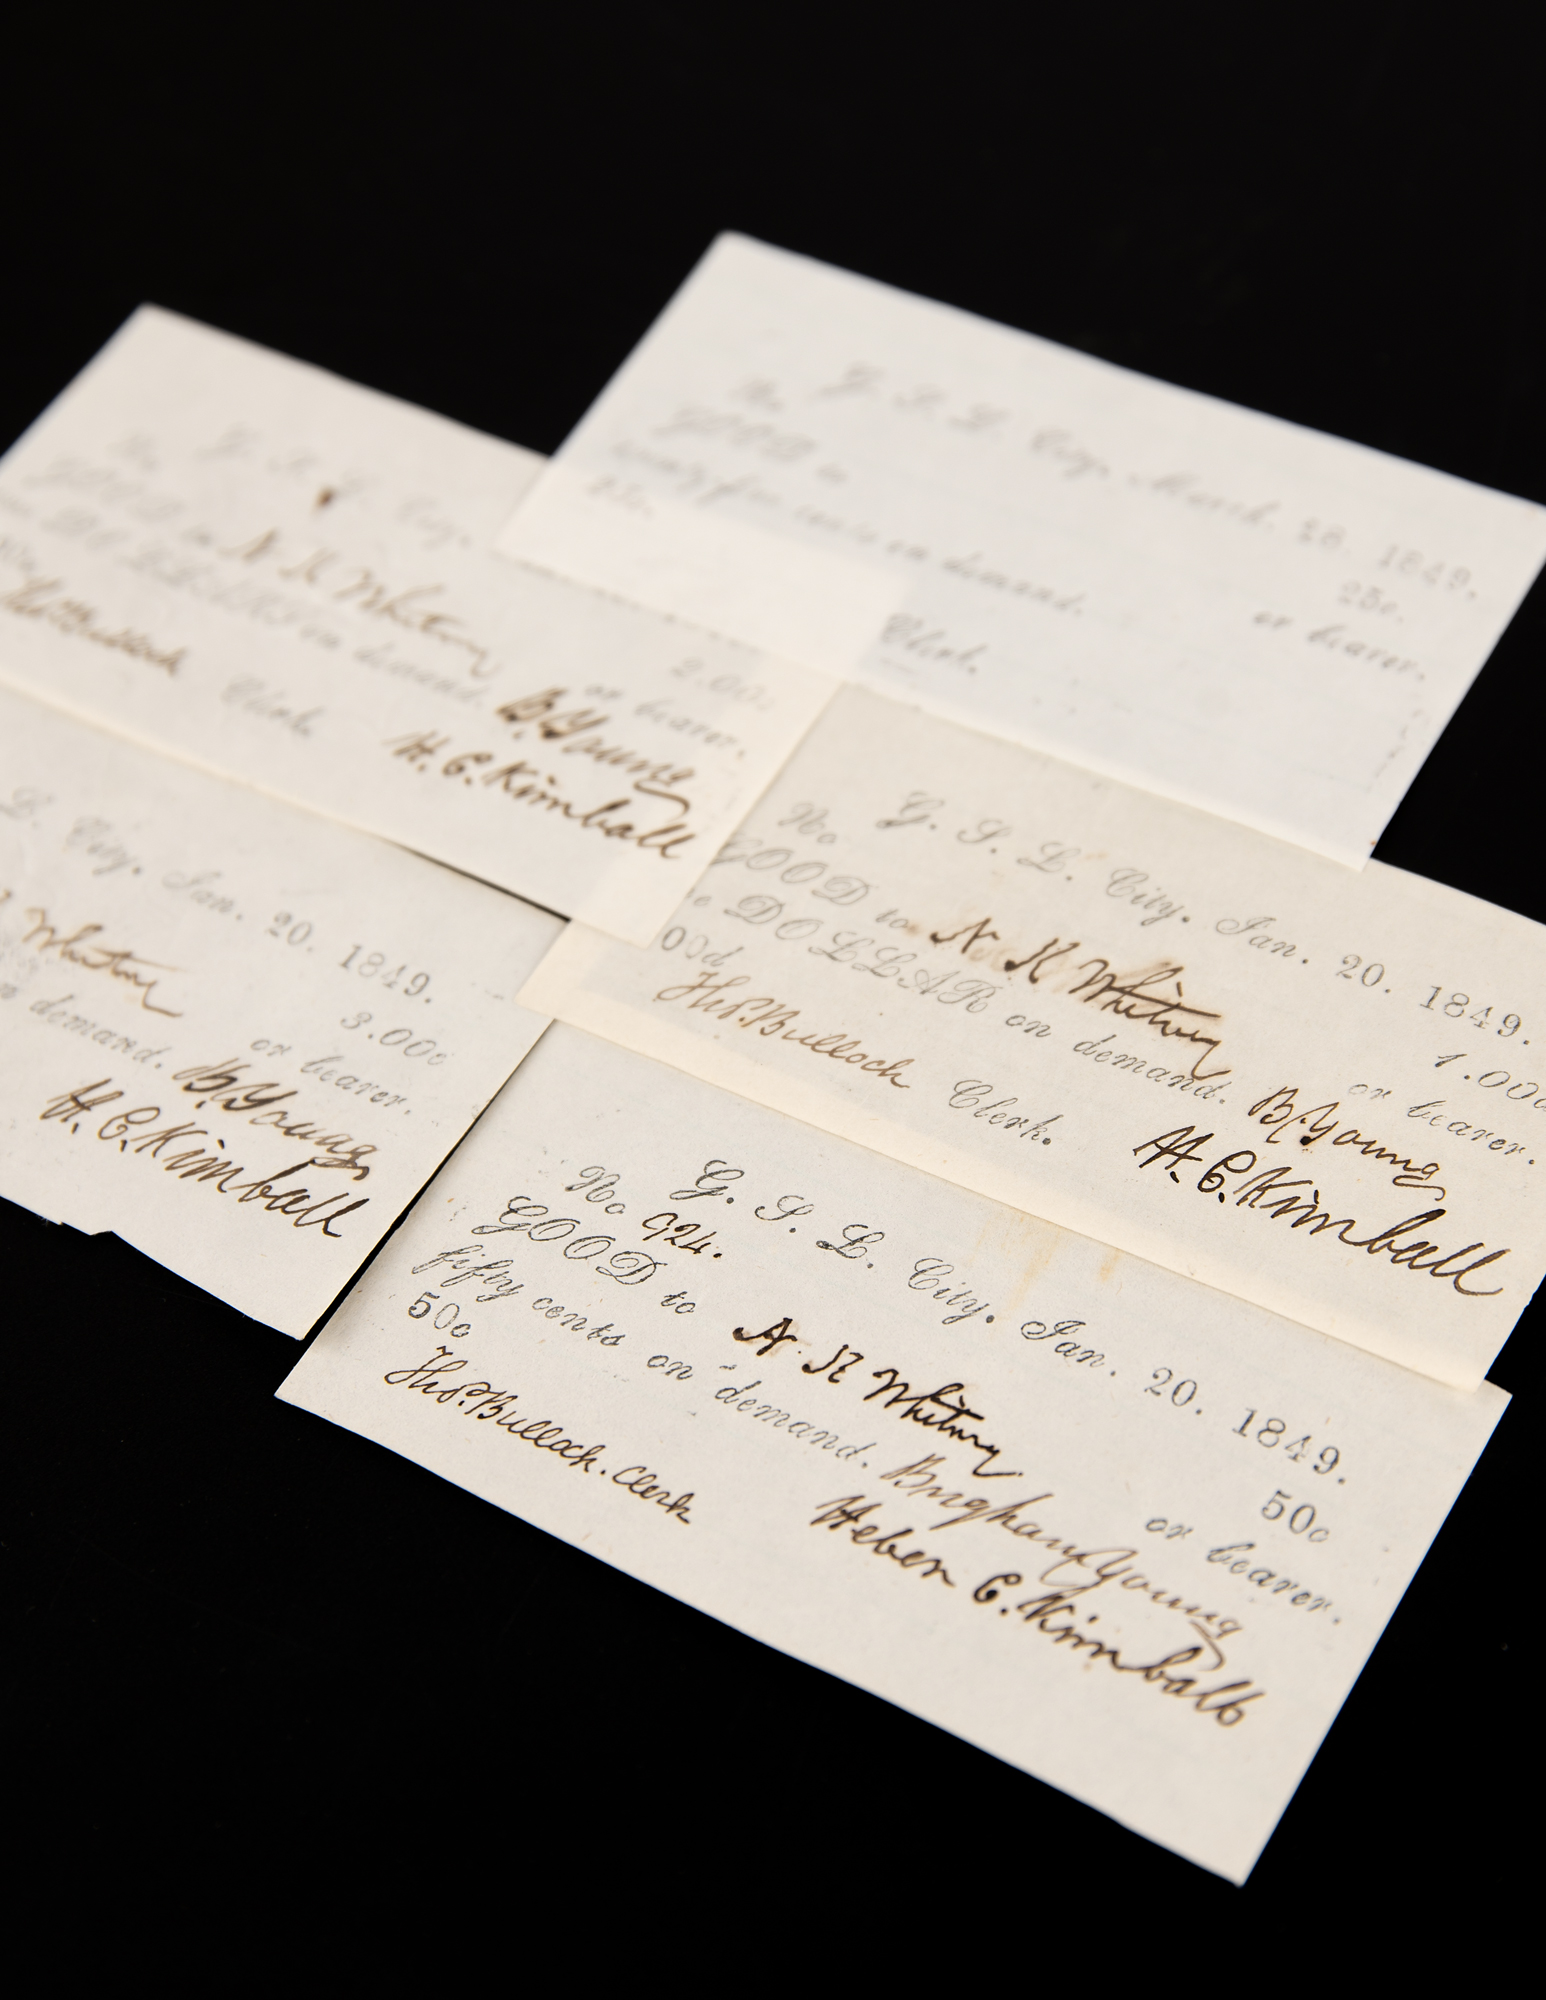 G. S. L. City. March. 28. 1849.
No
25c.
GOOD to
or bearer.
twenty five cents on demand.
25c.
Clerk.
G. S. L. City.
No
2.00c
GOOD to N K Whitney
or bearer.
DOLLARS on demand. B. Young
Tho Bullock Clerk. H. C. Kimball
L. City. Jan. 20. 1849.
3.00c
Whitney or bearer.
demand. B. Young
H. C. Kimball
G. S. L. City. Jan. 20. 1849.
No
1.00c
GOOD to N K Whitney or bearer.
DOLLAR on demand. B. Young
00d
Thos. Bullock Clerk. H. C. Kimball
G. S. L. City. Jan. 20. 1849.
No 924.
50c
GOOD to N. K Whitney or bearer.
fifty cents on demand. Brigham Young
50c
Thos. Bullock. Clerk Heber C. Kimball